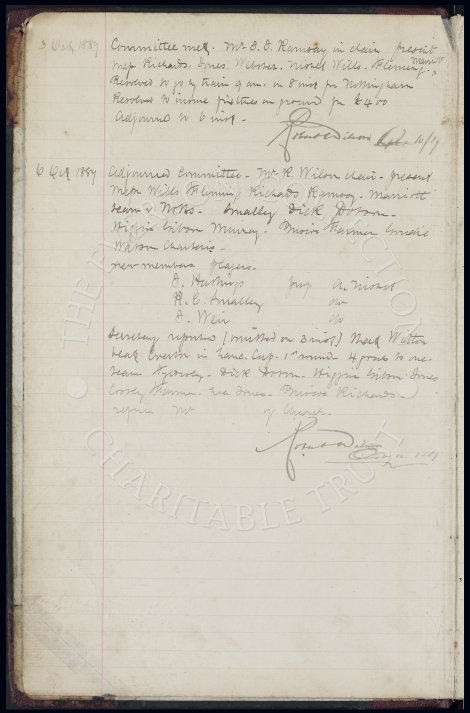 3 Oct 1887 Committee met. Mr J. J. Ramsay in chair present
Messrs Richards. Jones. Webster. Nisbet Wills. Fleming. Marriott
Resolved to go by train 9 am. on 8 inst for Nottingham
Resolved to insure fixtures on ground for £400
Adjourned to 6 inst.
Robert Wilson 10/87
6 Oct 1887 Adjourned Committee. Mr R Wilson chair. present
Messrs Wills Fleming Richards Ramsay. Marriott
team v Notts. Smalley Dick Dobson.
Higgins Gibson Murray. Briscoe Farmer Goudie
Watson Charteris.
New members players.
J. Hastings prop A. Nisbet
R. E. Smalley do
J. Weir do
Secretary reported (omitted on 3 inst) that Witton
beat Everton in Lanc. Cup. 1st round 4 goals to one.
team Dick Dobson. Higgins Gibson Jones
Farmer. Jones. Briscoe Richards.
of Church.
Robert Wilson
THE EVERTON COLLECTION
CHARITABLE TRUST